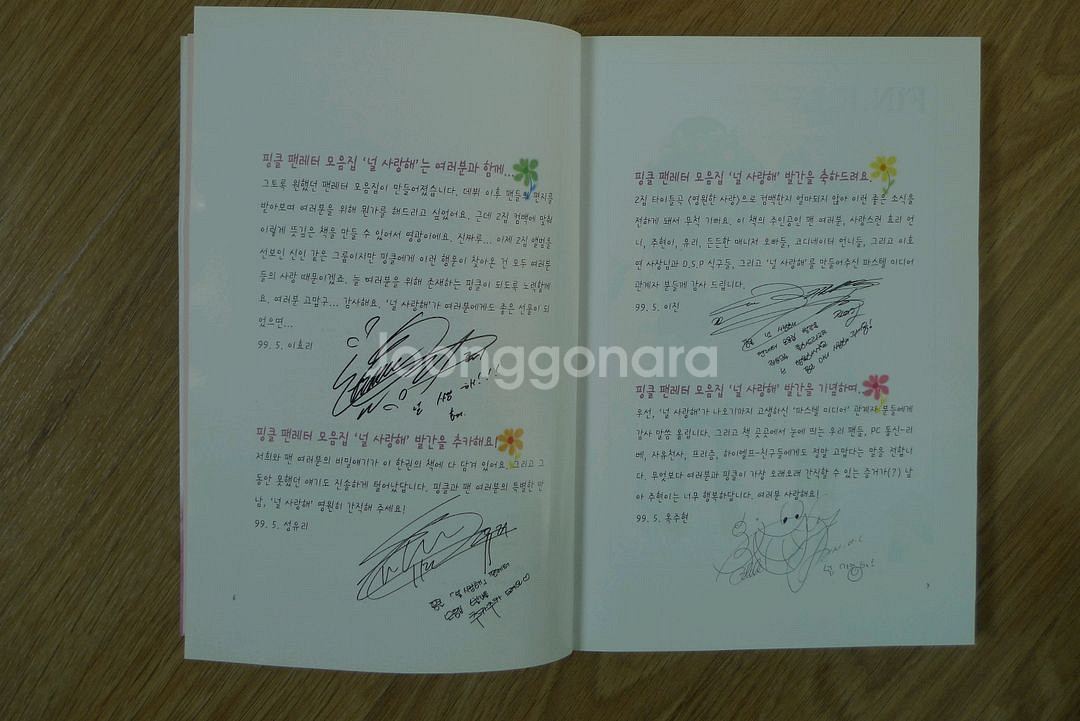 핑클 팬레터 모음집 '널 사랑해'는 여러분과 함께...
그토록 원했던 팬레터 모음집이 만들어졌습니다. 데뷔 이후 팬들의 편지를
받아보며 여러분을 위해 뭔가를 해드리고 싶었어요. 근데 2집 컴백에 맞춰
이렇게 뜻깊은 책을 만들 수 있어서 영광이에요. 진짜루... 이제 2집 앨범을
선보인 신인 같은 그룹이지만 핑클에게 이런 행운이 찾아온 건 모두 여러분
들의 사랑 때문이겠죠. 늘 여러분을 위해 존재하는 핑클이 되도록 노력할게
요. 여러분 고맙구... 감사해요. '널 사랑해'가 여러분에게도 좋은 선물이 되
었으면...
99. 5. 이효리
널 사랑해
핑클 팬레터 모음집 '널 사랑해' 발간을 추카해요!
저희와 팬 여러분의 비밀얘기가 이 한권의 책에 다 담겨 있어요. 그리고 그
동안 못했던 얘기도 진솔하게 털어놨답니다. 핑클과 팬 여러분의 특별한 만
남, '널 사랑해' 영원히 간직해 주세요!
99. 5. 성유리
6
핑클 팬레터 모음집 '널 사랑해' 발간을 축하드려요.
2집 타이틀곡 <영원한 사랑>으로 컴백한지 얼마되지 않아 이런 좋은 소식을
전하게 돼서 무척 기뻐요. 이 책의 주인공인 팬 여러분, 사랑스런 효리 언
니, 주현이, 유리, 든든한 매니저 오빠들, 코디네이터 언니들, 그리고 이호
연 사장님과 D.S.P 식구들, 그리고 '널 사랑해'를 만들어주신 파스텔 미디어
관계자 분들께 감사 드립니다.
99. 5. 이진
핑클 팬레터 모음집 '널 사랑해' 발간을 기념하며.
우선, '널 사랑해'가 나오기까지 고생하신 '파스텔 미디어' 관계자 분들에게
감사 말씀 올립니다. 그리고 책 곳곳에서 눈에 띄는 우리 팬들, PC 통신-리
베, 자유천사, 프리즘, 하이텔프-친구들에게도 정말 고맙다는 말을 전합니
다. 무엇보다 여러분과 핑클이 가장 오래오래 간직할 수 있는 증거가(?) 남
아 주현이는 너무 행복하답니다. 여러분 사랑해요!
99. 5. 옥주현
Joonggonara